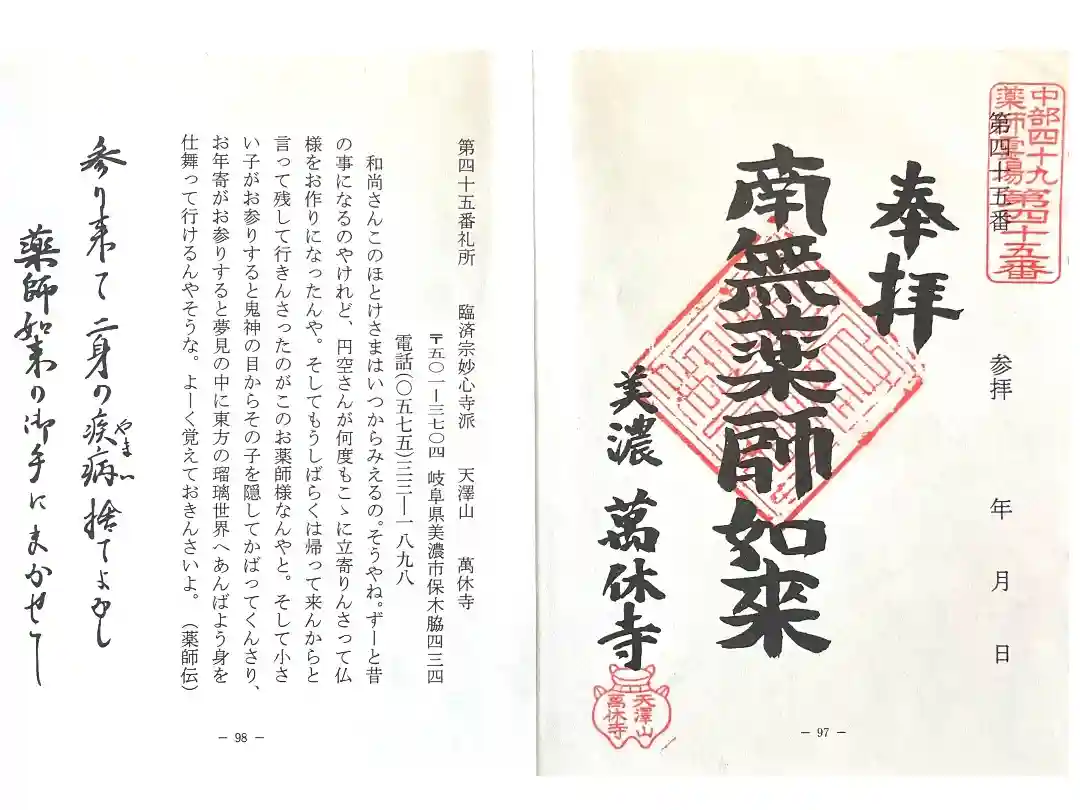 中部四十九
薬師霊場第四十五番
第四十五番
参拝 年 月 日
奉拝
南無薬師如来
美濃 萬休寺
天澤山
萬休寺
― 97 ―
第四十五番札所 臨済宗妙心寺派 天澤山 萬休寺
〒五〇一―三七〇四 岐阜県美濃市保木脇四三四
電話(〇五七五)三三―一八九八
和尚さんこのほとけさまはいつからみえるの。そうやね。ずーと昔
の事になるのやけれど、円空さんが何度もこゝに立寄りんさって仏
様をお作りになったんや。そしてもうしばらくは帰って来んからと
言って残して行きんさったのがこのお薬師様なんやと。そして小さ
い子がお参りすると鬼神の目からその子を隠してかばってくんさり、
お年寄がお参りすると夢見の中に東方の瑠璃世界へあんばよう身を
仕舞って行けるんやそうな。よーく覚えておきんさいよ。（薬師伝）
参り来て 身の疾病捨てよ
やまい
薬師如来の御手にまかせて
― 98 ―